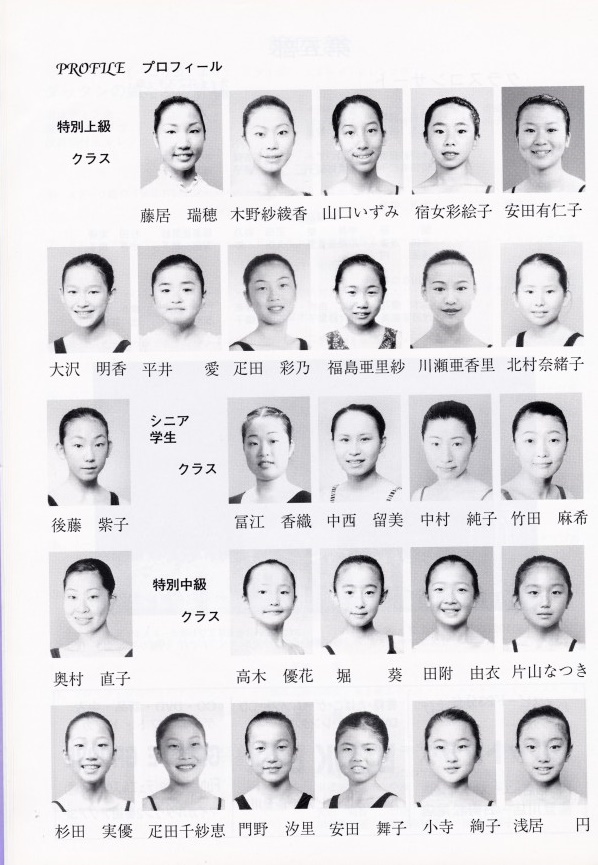 PROFILE プロフィール
特別上級
クラス
藤居 瑞穂 木野紗綾香 山口いずみ 宿女彩絵子 安田有仁子
大沢 明香 平井 愛 疋田 彩乃 福島亜里紗 川瀬亜香里 北村奈緒子
シニア
学生
クラス
後藤 紫子 冨江 香織 中西 留美 中村 純子 竹田 麻希
特別中級
クラス
奥村 直子 高木 優花 堀 葵 田附 由衣 片山なつき
杉田 実優 疋田千紗恵 門野 汐里 安田 舞子 小寺 絢子 浅居 円